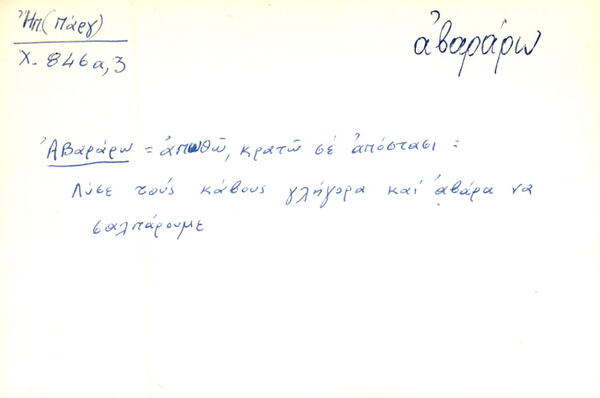 Ἠπ(Πάργ)
Χ. 846α,3
ἀβαράρω
Ἀβαράρω = ἀπωθῶ, κρατῶ σέ ἀπόστασι :
Λύσε τούς κάβους γλήγορα καί ἀβάρα να
σαλπάρουμε